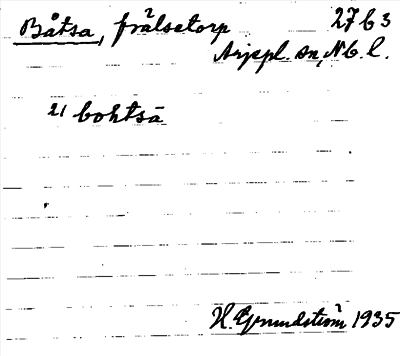 Båtsa, frälsetorp 27 b 3
Arjepl. sn, Nb. l.
21 bohtsā
H. Grundström 1935